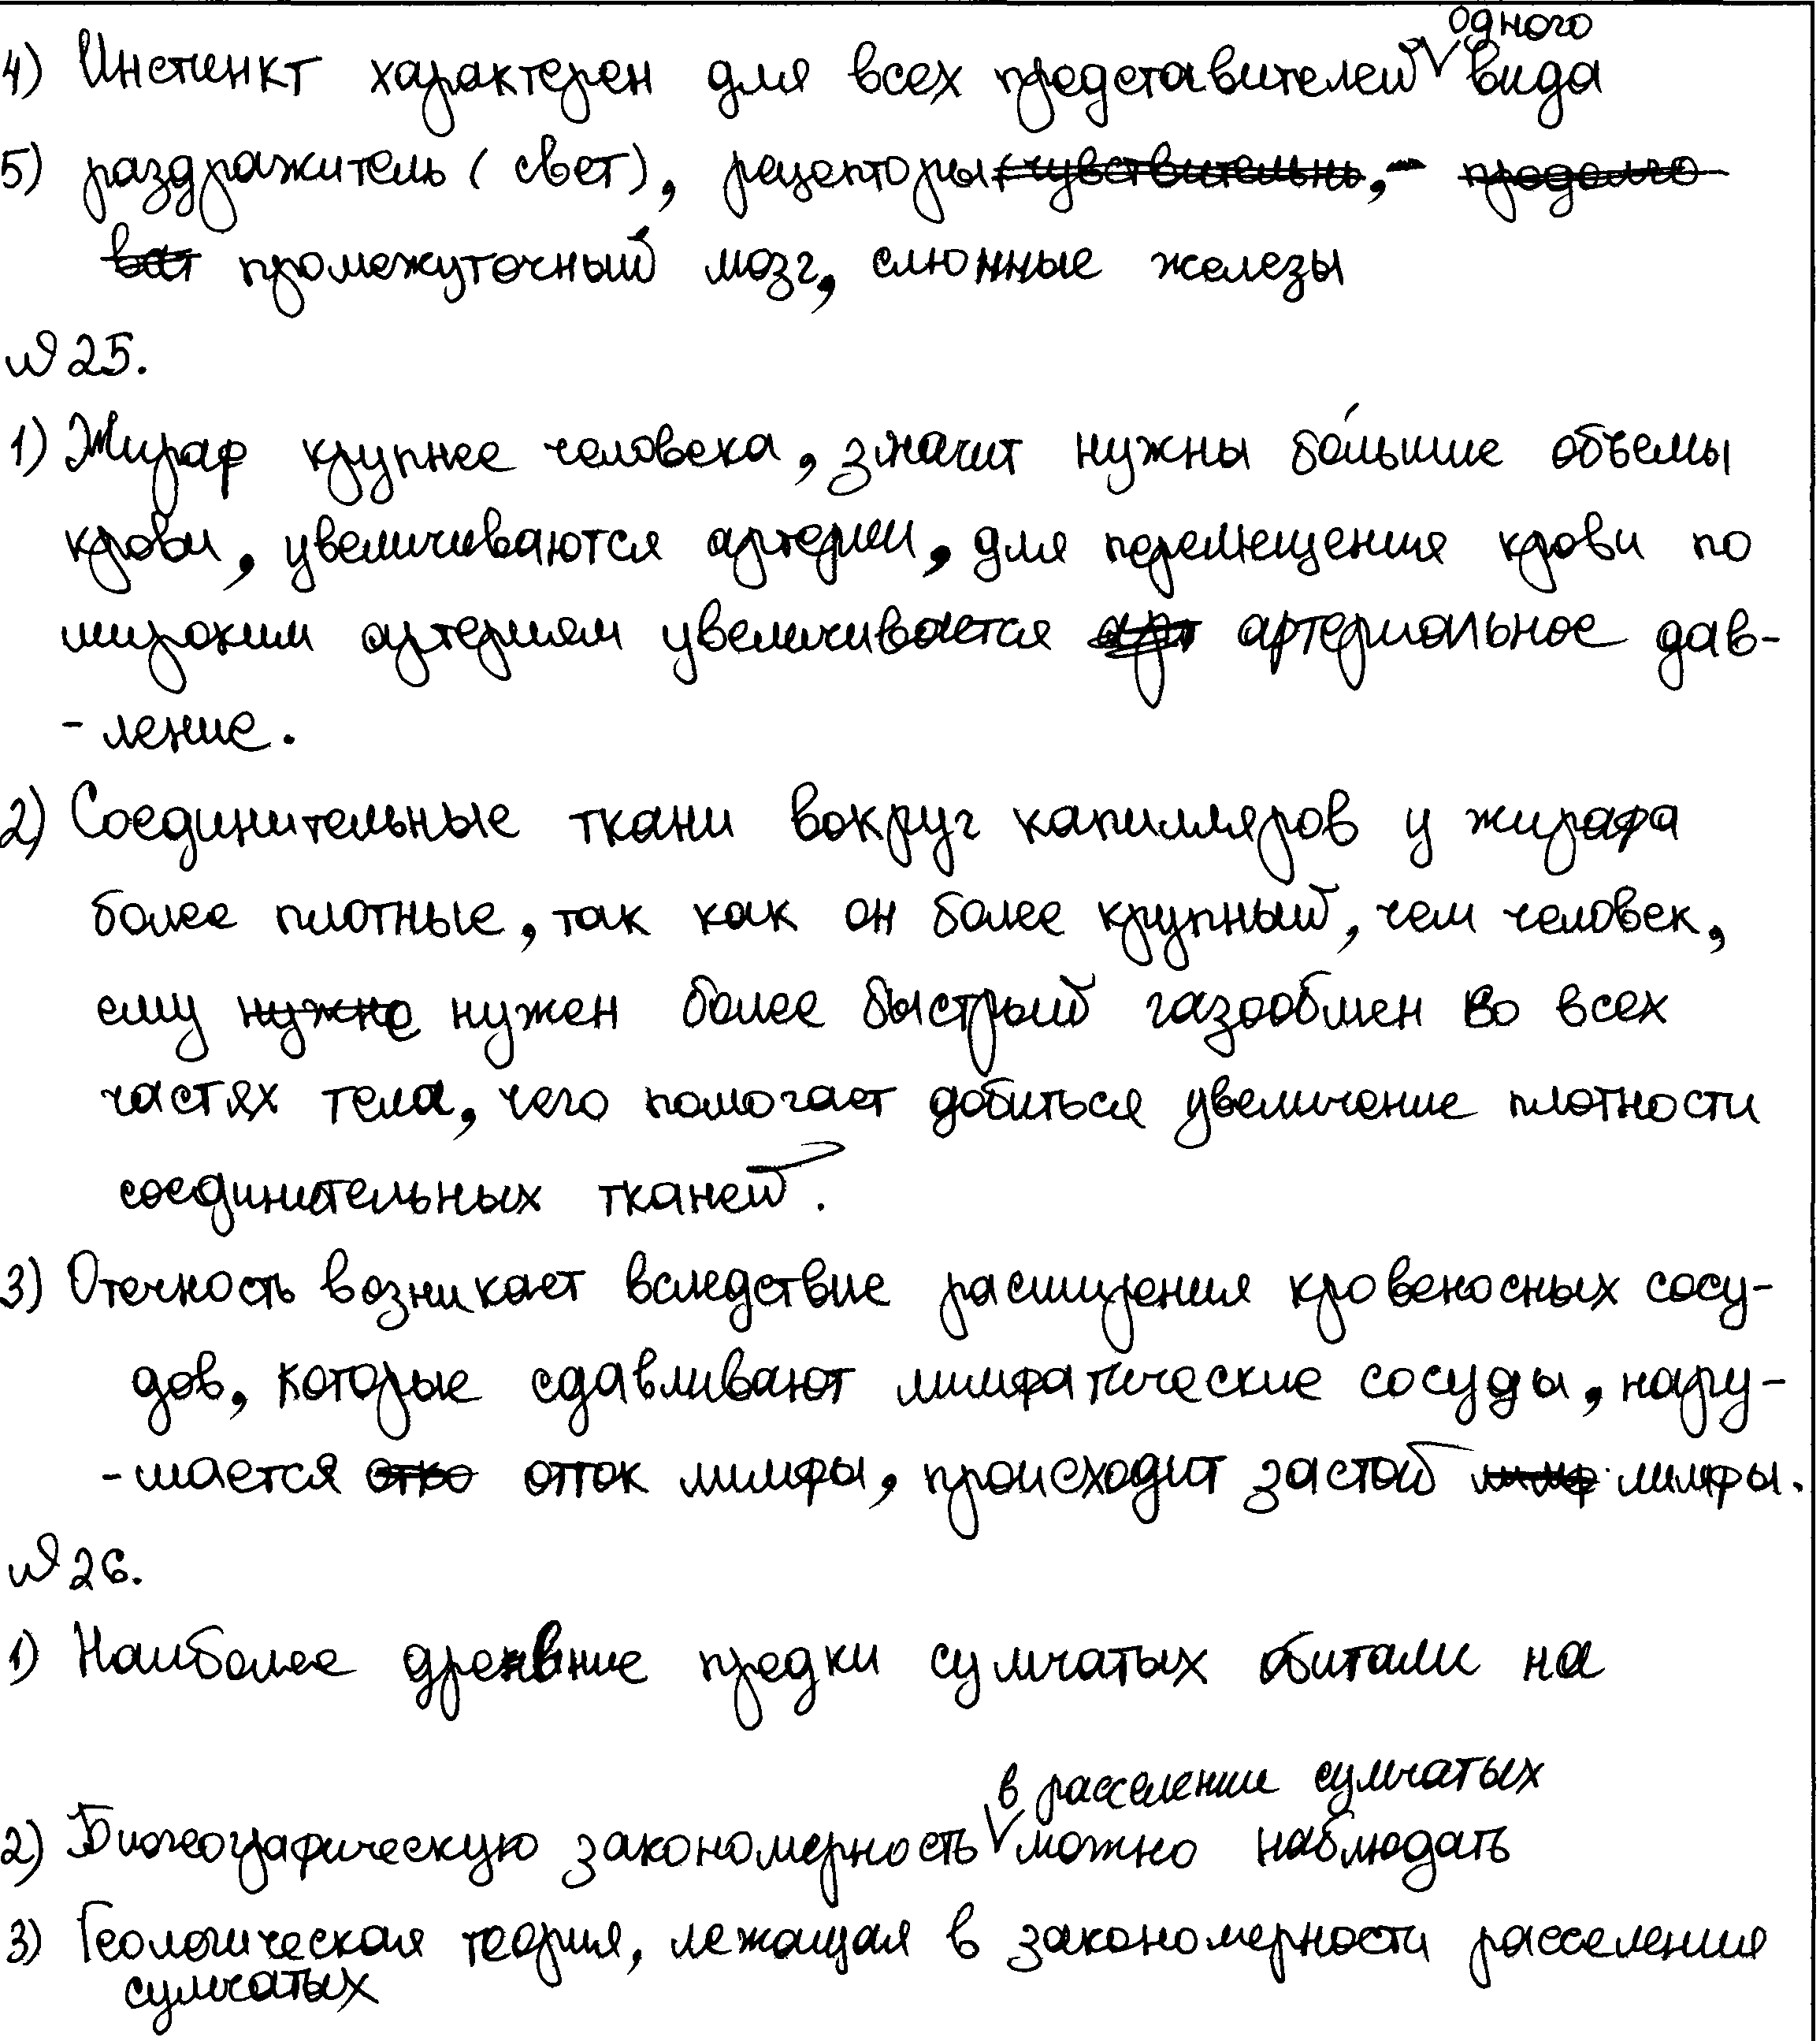 4) Инстинкт характерен для всех представителей одного вида
5) раздражитель (свет), рецепторы (чувствительны, - продолго
ват промежуточный мозг, слюнные железы
№25.
1) Жираф крупнее человека, значит нужны бо́льшие объемы
крови, увеличиваются артерии, для перемещения крови по
широким артериям увеличивается арт артериальное дав-
-ление.
2) Соединительные ткани вокруг капилляров у жирафа
более плотные, так как он более крупный, чем человек,
ему нужно нужен более быстрый газообмен во всех
частях тела, чего помогает добиться увеличение плотности
соединительных тканей.
3) Отечность возникает вследствие расширения кровеносных сосу-
дов, которые сдавливают лимфатические сосуды, нару-
-шается отко отток лимфы, происходит застой лимф лимфы.
№26.
1) Наиболее древние предки сумчатых обитали на
2) Биогеографическую закономерность в расселении сумчатых можно наблюдать
3) Геологическая теория, лежащая в закономерности расселения
сумчатых